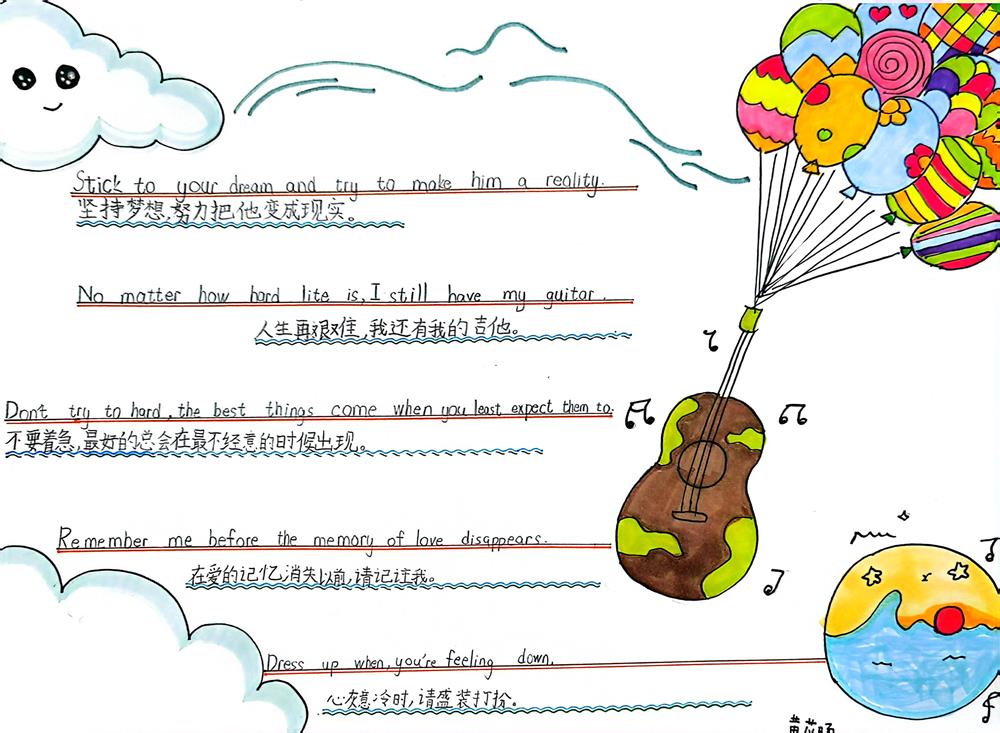 Stick to your dream and try to make him a reality.
坚持梦想,努力把他变成现实。
No matter how hard lite is, I still have my guitar.
人生再艰难,我还有我的吉他。
Dont try to hard, the best things come when you least expect them to.
不要着急,最好的总会在最不经意的时候出现。
Remember me before the memory of love disappears.
在爱的记忆消失以前,请记住我。
Dress up when, you're feeling down.
心灰意冷时,请盛装打扮。